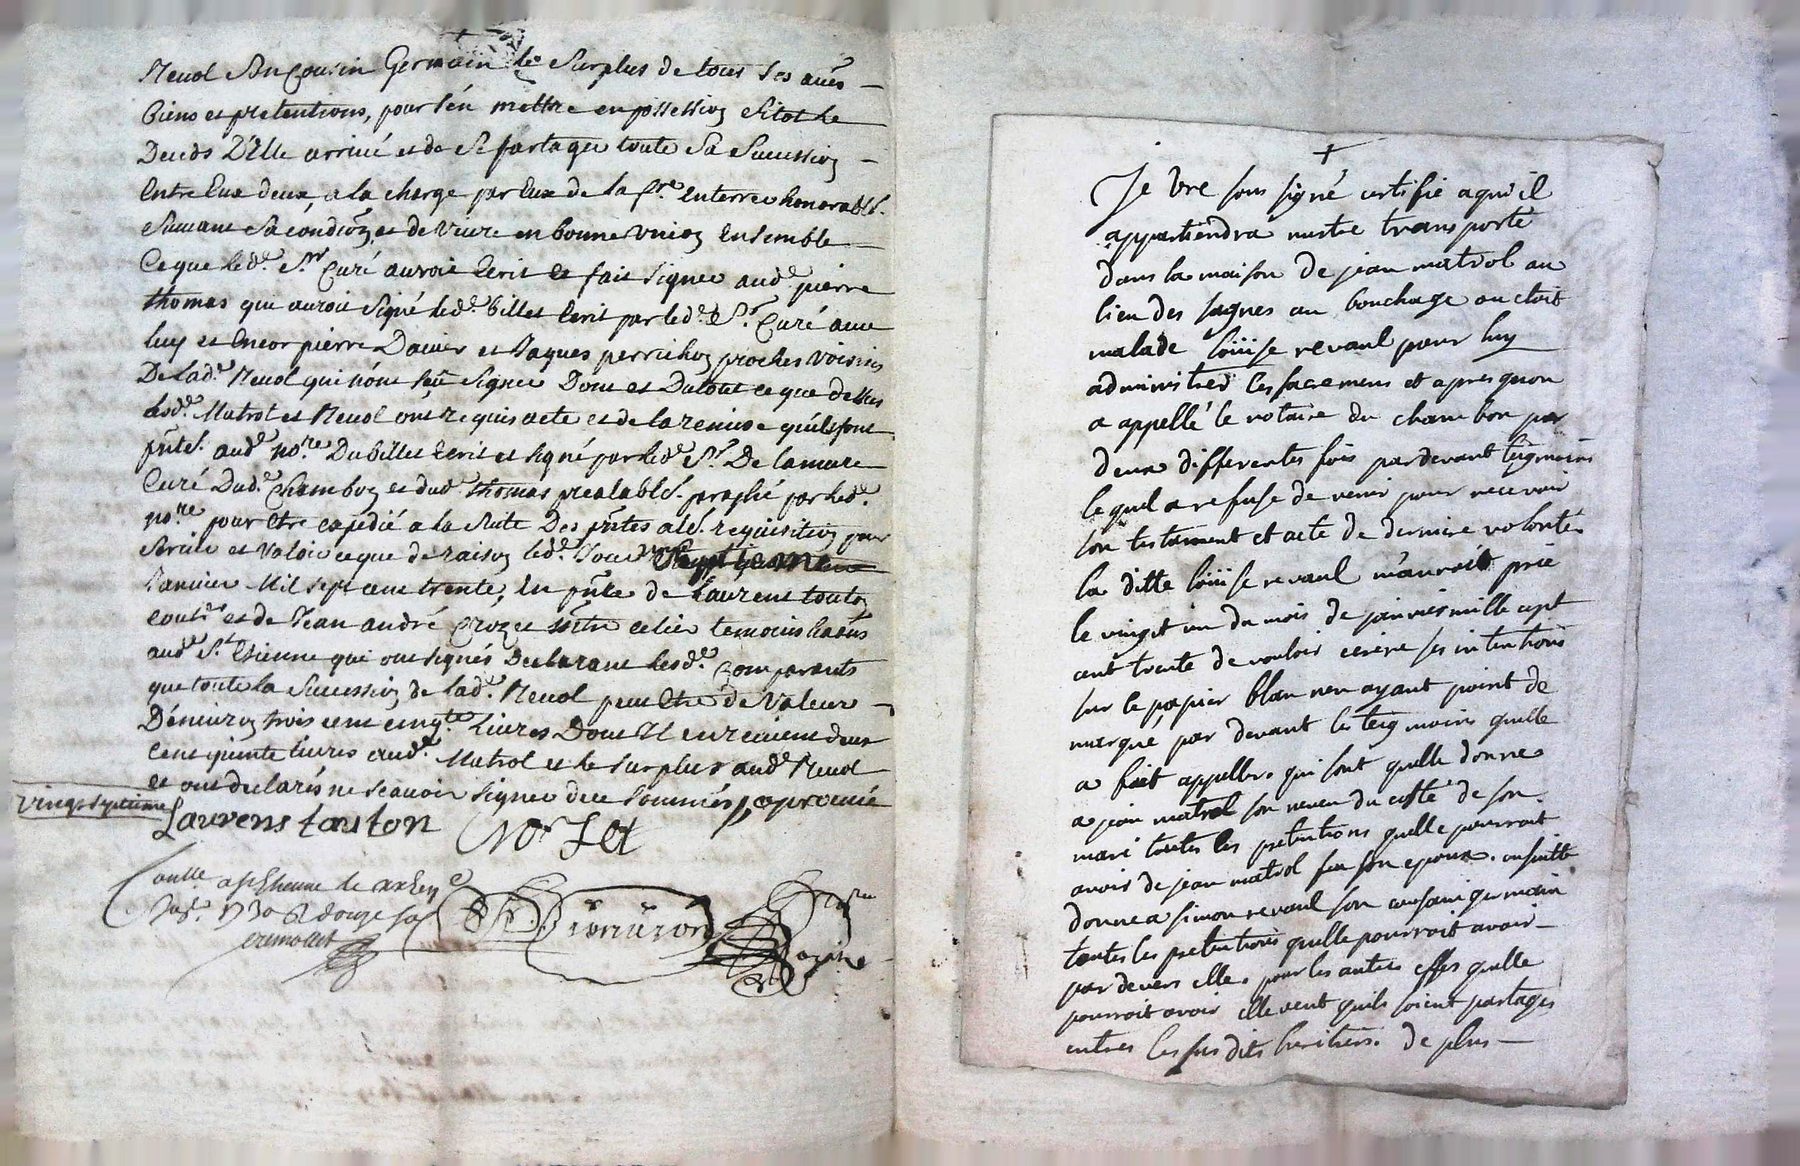 Reuol Son Cousin Germain le Surplus de tous ses aués
biens et pretentions, pour s'en mettre en possession sitot le
Deceds D'Elle arriué et de se partager toute Sa Succession
Entre Eux deux, a la charge par Eux de la fre. Enterrer honorablt.
Suivant Sa condion, et de Viure en bonne Vnion Ensemble
Ce que ledt. Sr. Curé auroit Ecrit et fait signer audt. pierre
thomas qui auroit Signé ledt. billet Ecrit par ledt. Sr. Curé auec
luy et Encor pierre Dauier et Jaques perrichon proches Voisins
De ladt. Reuol qui n'ont sçeu Signer Dont et Du tout ce que dessus
lesdt. Matrol et Reuol ont requis acte et de la remise qu'ils font
pntet. audt. nore. Du billet Ecrit et signé par ledt. Sr. De lamure
Curé Dudt. Chambon et dudt. thomas prealablet. paraphé par ledt.
nore. pour Etre expedié a la suite Des pntes a lad. requisition pour
Seruir et Valoir ce que de raison ledt. Jour
Januier Mil sept cent trente, En pnte de Laurens touton
et de Jean andré temoins
audt. St. Etienne qui ont signés Declarant lesdt. Comparants
que toute la Succession de ladt. Reuol peut Etre de Valeur
D'enuiron trois cent cinqte. Liures Dont Il en reuient deux
cent quinte liures audt. Matrol et le surplus audt. Reuol
et ont declarés ne scauoir signer de ce sommés, approuué
vingt septieme
Laurens touton
Conlle. a St Etienne le
1730 R douze s
Je Vre sous signé certifie a qui il
appartiendra mestre transporté
dans la maison De jean matrol au
lieu des sagnes au bouchage ou etoit
malade loüise revaul pour luy
administrer les sacremens et apres quon
a appellé le notaire du chambon par
deux differentes fois par devant teigmoins
lequel a refuse de venir pour recevoir
son testament et acte de derniere volontés
la ditte loüise revaul m'auroit prié
le vingt un du mois de janvier mille cept
cent trente de vouloir ecrire ses intentions
sur le papier blan nen ayant point de
marqué par devant les teigmoins quelle
a fait appeller. qui sont quelle donne
a jean matrol son neveu du costé de son
mari toutes les pretentions quelle pourroit
avoir de jean matrol feu son epoux. ensuitte
donne a simon revaul son cousain germain
toutes les pretentions quelle pourroit avoir
par devers elle. pour les autres effes quelle
pourroit avoir elle veut quils soient partagés
entres les sus dits heritiers. De plus